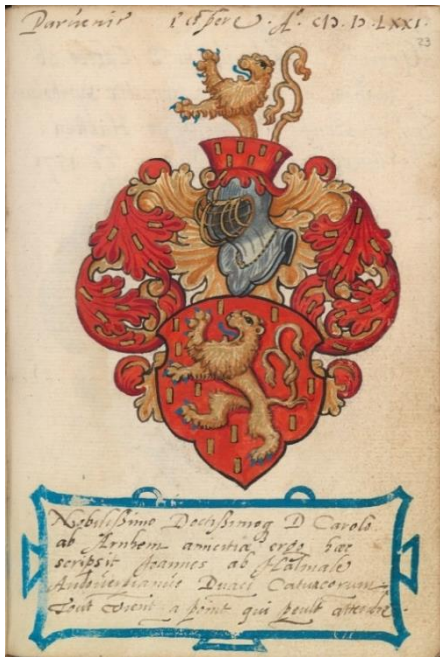 Parvenir i espere. A°. CIↃ.IↃ.LXXI.
23
Nobilissimo Doctissimoq D Carolo
ab Arnhem amicitiæ ergo hæc
scripsit Joannes ab Halmale
Antverpianus Duaci Catuacorum
Tout vient a point qui peult attendre.